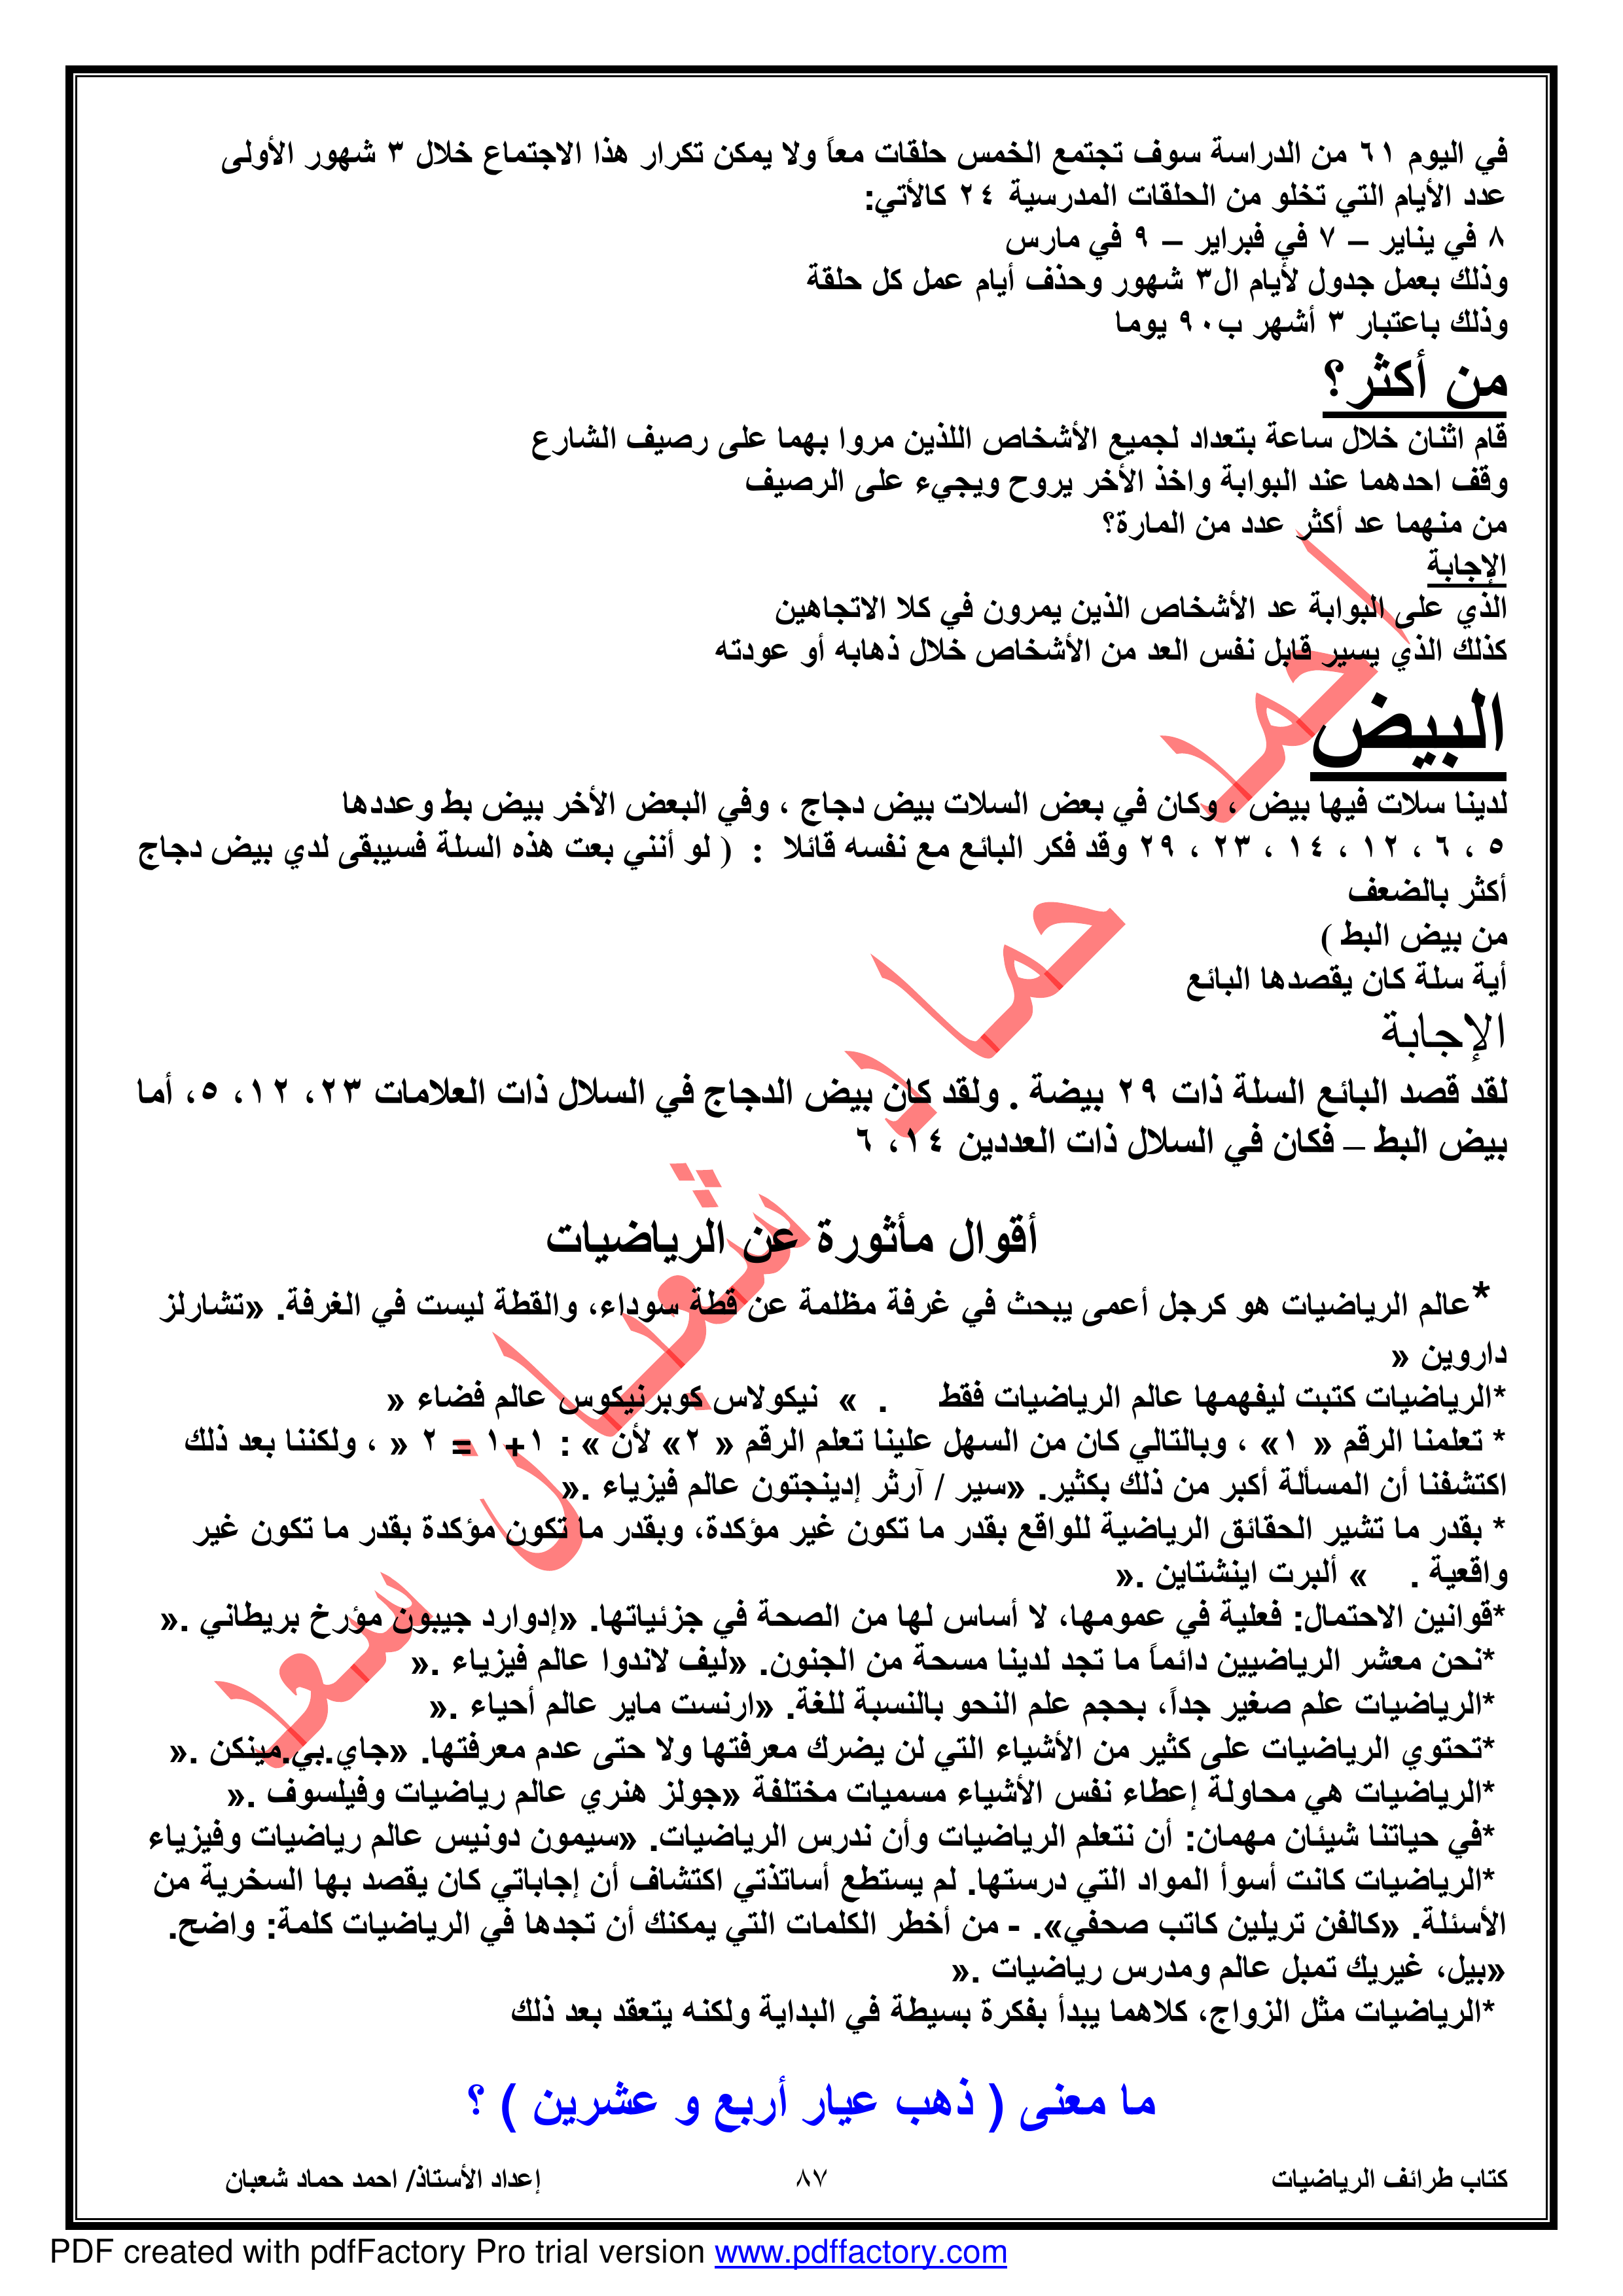 في اليوم ٦١ من الدراسة سوف تجتمع الخمس حلقات معاً ولا يمكن تكرار هذا الاجتماع خلال ٣ شهور الأولى
عدد الأيام التي تخلو من الحلقات المدرسية ٢٤ كالأتي:
٨ في يناير – ٧ في فبراير – ٩ في مارس
وذلك بعمل جدول لأيام ال٣ شهور وحذف أيام عمل كل حلقة
وذلك باعتبار ٣ أشهر ب٩٠ يوما
من أكثر؟
قام اثنان خلال ساعة بتعداد لجميع الأشخاص اللذين مروا بهما على رصيف الشارع
وقف احدهما عند البوابة واخذ الأخر يروح ويجيء على الرصيف
من منهما عد أكثر عدد من المارة؟
الإجابة
الذي على البوابة عد الأشخاص الذين يمرون في كلا الاتجاهين
كذلك الذي يسير قابل نفس العد من الأشخاص خلال ذهابه أو عودته
البيض
لدينا سلات فيها بيض ، وكان في بعض السلات بيض دجاج ، وفي البعض الأخر بيض بط وعددها
٥ ، ٦ ، ١٢ ، ١٤ ، ٢٣ ، ٢٩ وقد فكر البائع مع نفسه قائلا : ( لو أنني بعت هذه السلة فسيبقى لدي بيض دجاج
أكثر بالضعف
من بيض البط )
أية سلة كان يقصدها البائع
الإجابة
لقد قصد البائع السلة ذات ٢٩ بيضة . ولقد كان بيض الدجاج في السلال ذات العلامات ٢٣، ١٢، ٥، أما
بيض البط – فكان في السلال ذات العددين ١٤، ٦
أقوال مأثورة عن الرياضيات
*عالم الرياضيات هو كرجل أعمى يبحث في غرفة مظلمة عن قطة سوداء، والقطة ليست في الغرفة. «تشارلز
داروين »
*الرياضيات كتبت ليفهمها عالم الرياضيات فقط . « نيكولاس كوبرنيكوس عالم فضاء »
* تعلمنا الرقم « ١» ، وبالتالي كان من السهل علينا تعلم الرقم « ٢» لأن « : ١+١ = ٢ » ، ولكننا بعد ذلك
اكتشفنا أن المسألة أكبر من ذلك بكثير. «سير / آرثر إدينجتون عالم فيزياء .»
* بقدر ما تشير الحقائق الرياضية للواقع بقدر ما تكون غير مؤكدة، وبقدر ما تكون مؤكدة بقدر ما تكون غير
واقعية . « ألبرت اينشتاين .»
*قوانين الاحتمال: فعلية في عمومها، لا أساس لها من الصحة في جزئياتها. «إدوارد جيبون مؤرخ بريطاني .»
*نحن معشر الرياضيين دائماً ما تجد لدينا مسحة من الجنون. «ليف لاندوا عالم فيزياء .»
*الرياضيات علم صغير جداً، بحجم علم النحو بالنسبة للغة. «ارنست ماير عالم أحياء .»
*تحتوي الرياضيات على كثير من الأشياء التي لن يضرك معرفتها ولا حتى عدم معرفتها. «جاي.بي.مينكن .»
*الرياضيات هي محاولة إعطاء نفس الأشياء مسميات مختلفة «جولز هنري عالم رياضيات وفيلسوف .»
*في حياتنا شيئان مهمان: أن نتعلم الرياضيات وأن ندرس الرياضيات. «سيمون دونيس عالم رياضيات وفيزياء
*الرياضيات كانت أسوأ المواد التي درستها. لم يستطع أساتذتي اكتشاف أن إجاباتي كان يقصد بها السخرية من
الأسئلة. «كالفن تريلين كاتب صحفي». - من أخطر الكلمات التي يمكنك أن تجدها في الرياضيات كلمة: واضح.
«بيل، غيريك تمبل عالم ومدرس رياضيات .»
*الرياضيات مثل الزواج، كلاهما يبدأ بفكرة بسيطة في البداية ولكنه يتعقد بعد ذلك
ما معنى ( ذهب عيار أربع و عشرين ) ؟
كتاب طرائف الرياضيات ٨٧ إعداد الأستاذ/ احمد حماد شعبان
احمد حماد شعبان سعد
PDF created with pdfFactory Pro trial version www.pdffactory.com